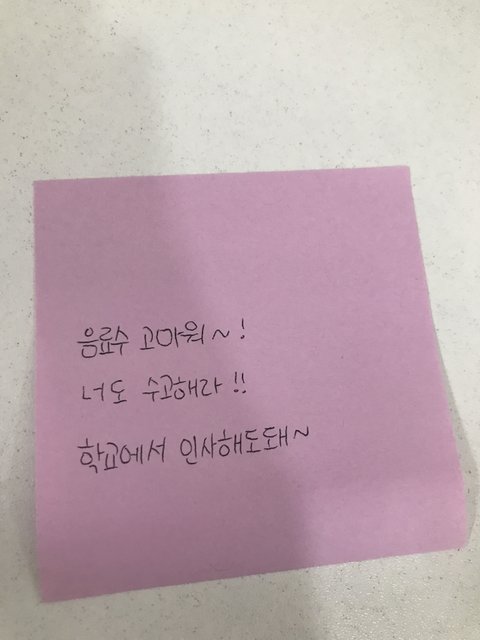 음료수 고마워~!
너도 수고해라!!
학교에서 인사해도돼~